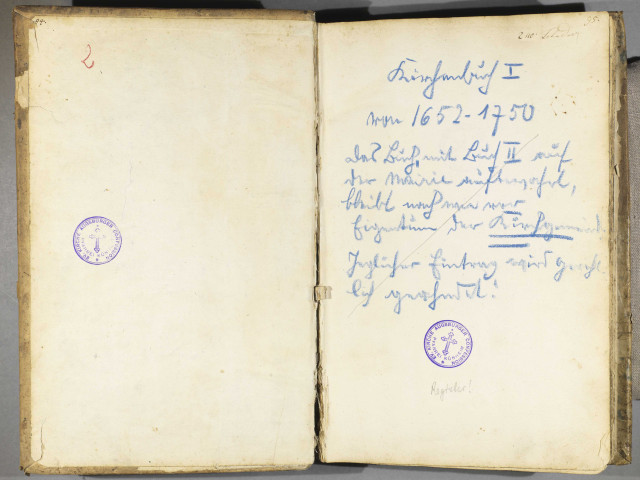 2
Kirchenbuch I
von 1652-1750
Das Buch, mit Buch II auf
der Mairie aufbewahrt,
bleibt nach wie vor
Eigentum der Kirchgemeinde
Jeglicher Eintrag wird gericht-
lich geahndet!
Register!